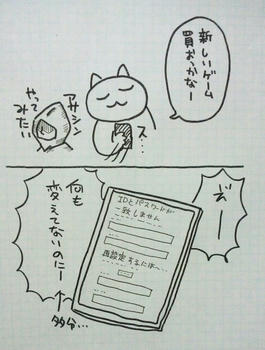 新しいゲーム
買おっかなー
アサシン
やって
みたい
ス…
IDとパスワードが
一致しません
再設定するには〜…
何も
変えてないのにー
多分…